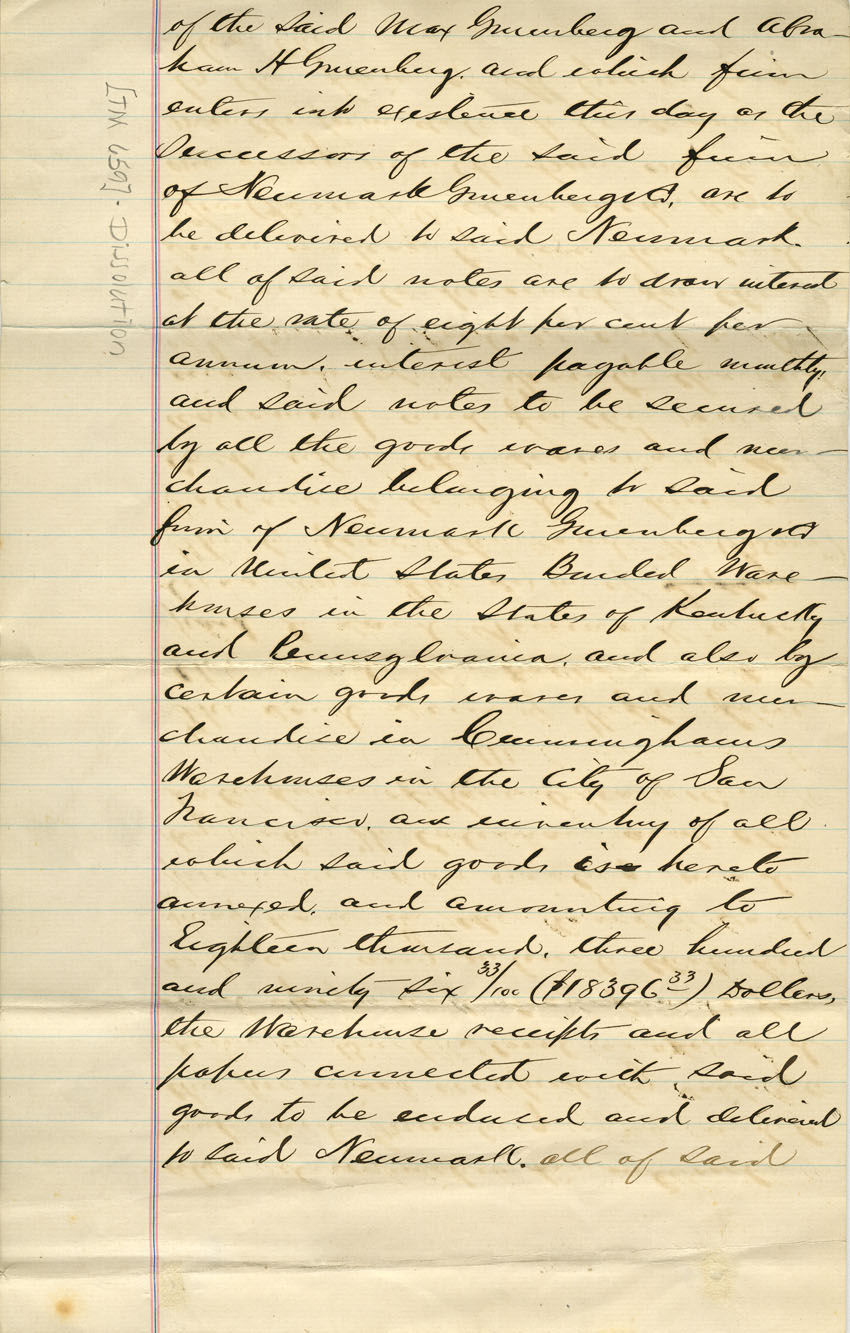 of the said Max Gruenberg and Abra-
ham H Gruenberg. and which firm
enters into existence this day as the
Successors of the said firm
of Neumark Gruenberg & Co, are to
be delivered to said Neumark.
all of said notes are to draw interest
at the rate of eight per cent per
annum. interest payable monthly,
and said notes to be secured
by all the goods wares and mer-
chandise belonging to said
firm of Neumark Gruenberg & Co
in United States Bonded Ware-
houses in the States of Kentucky
and Pennsylvania. and also by
certain goods wares and mer-
chandise in Cunninghams
Warehouses in the City of San
Francisco. an inventory of all
which said goods is hereto
annexed. and amounting to
Eighteen thousand. three hundred
and ninety six 33/100 ($18396 33) Dollars,
the Warehouse receipts and all
papers connected with said
goods to be endorsed and delivered
to said Neumark. all of said
[JM 6597]. Dissolution